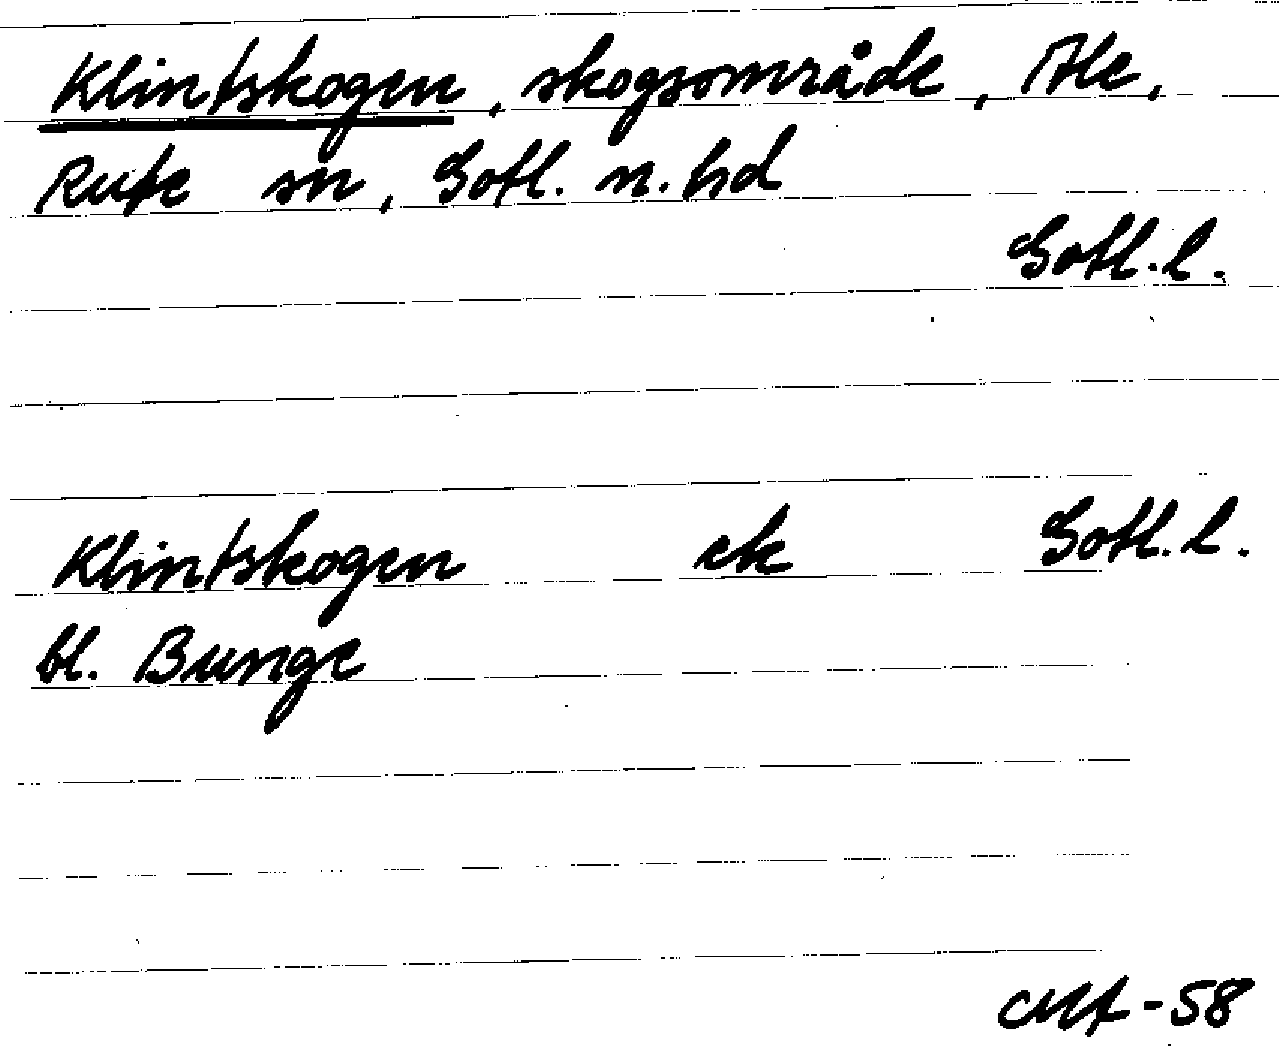 Klintskogen, skogsområde, Ale,
Rute sn, Gotl. n. hd
Gotl. l.
Klintskogen ek Gotl. l.
bl. Bunge
-58